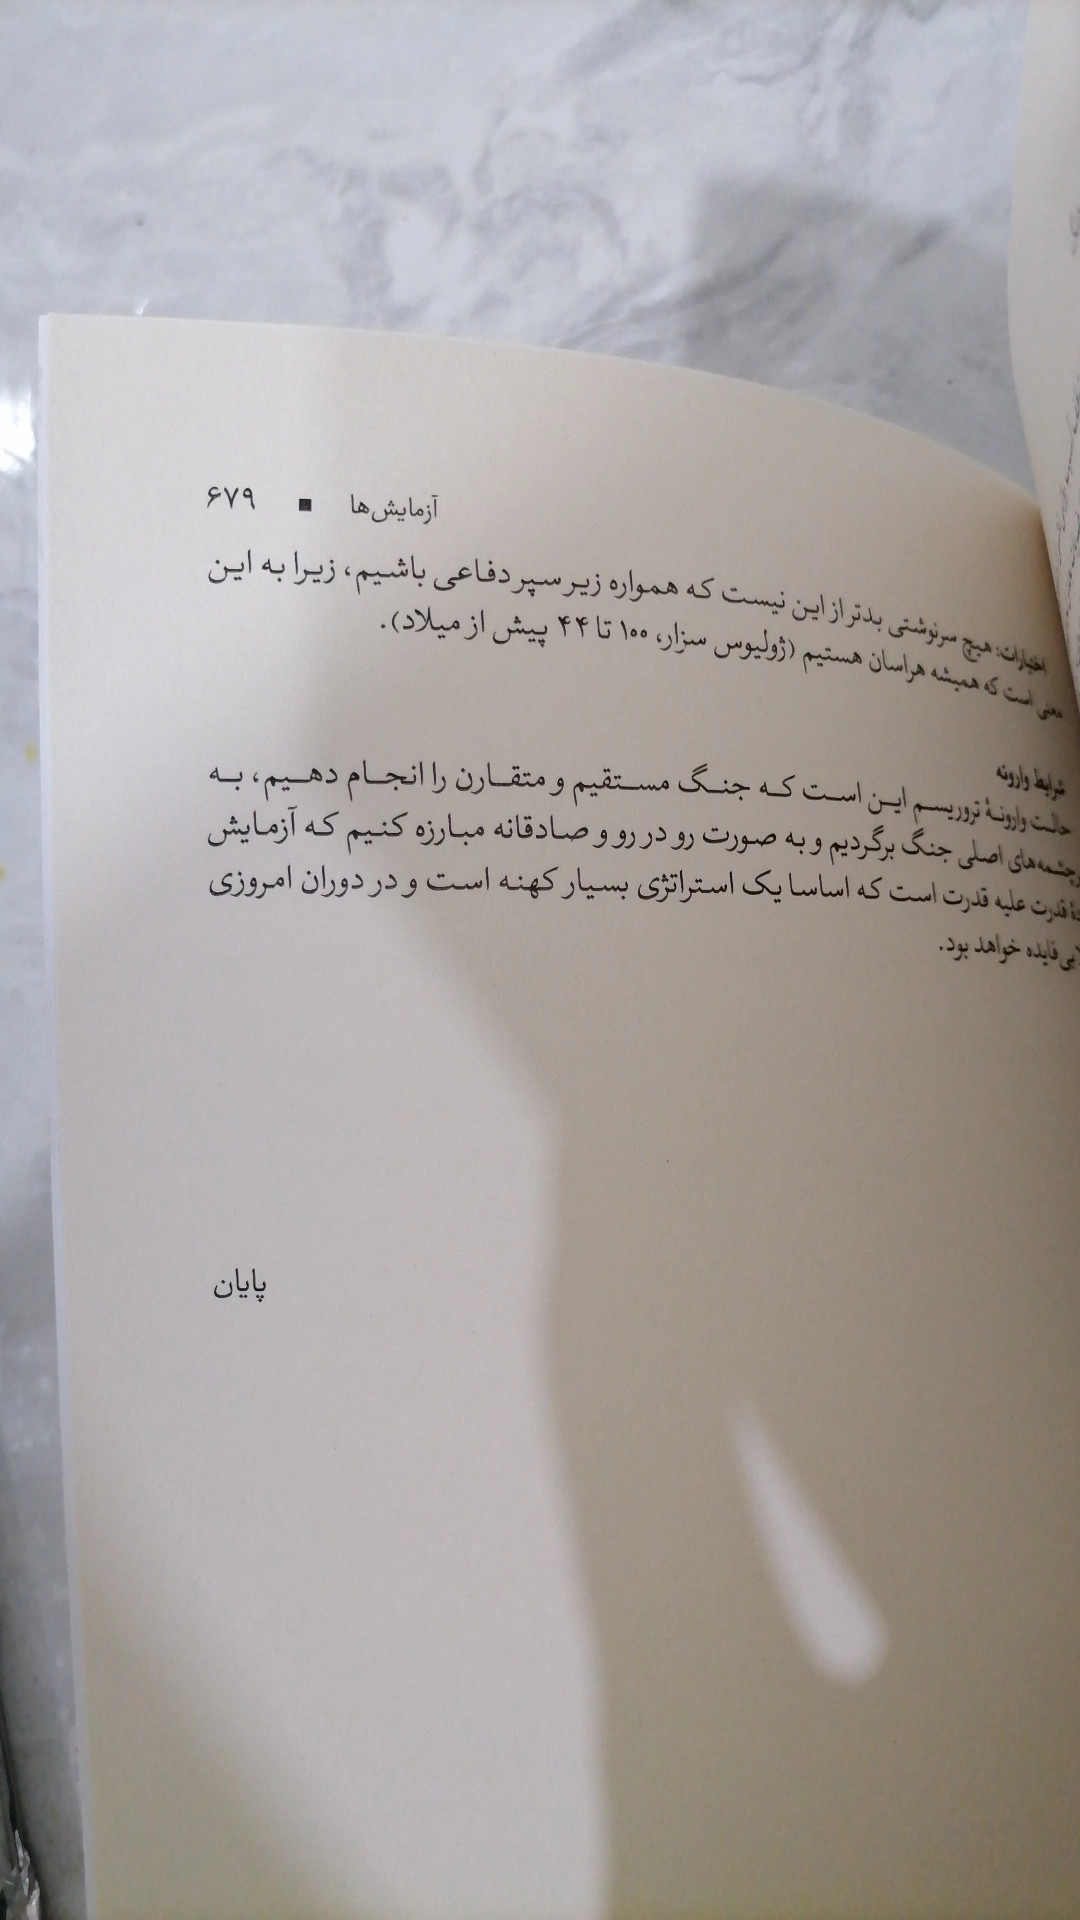 آزمایش‌ها ■ ۶۷۹
اختیارات: هیچ سرنوشتی بدتر از این نیست که همواره زیر سپر دفاعی باشیم، زیرا به این
معنی است که همیشه هراسان هستیم (ژولیوس سزار، ۱۰۰ تا ۴۴ پیش از میلاد).
شرایط وارونه
حالت وارونهٔ تروریسم این است که جنگ مستقیم و متقارن را انجام دهیم، به
اصلی جنگ برگردیم و به صورت رو در رو و صادقانه مبارزه کنیم که آزمایش
قدرت علیه قدرت است که اساسا یک استراتژی بسیار کهنه است و در دوران امروزی
بی‌فایده خواهد بود.
پایان